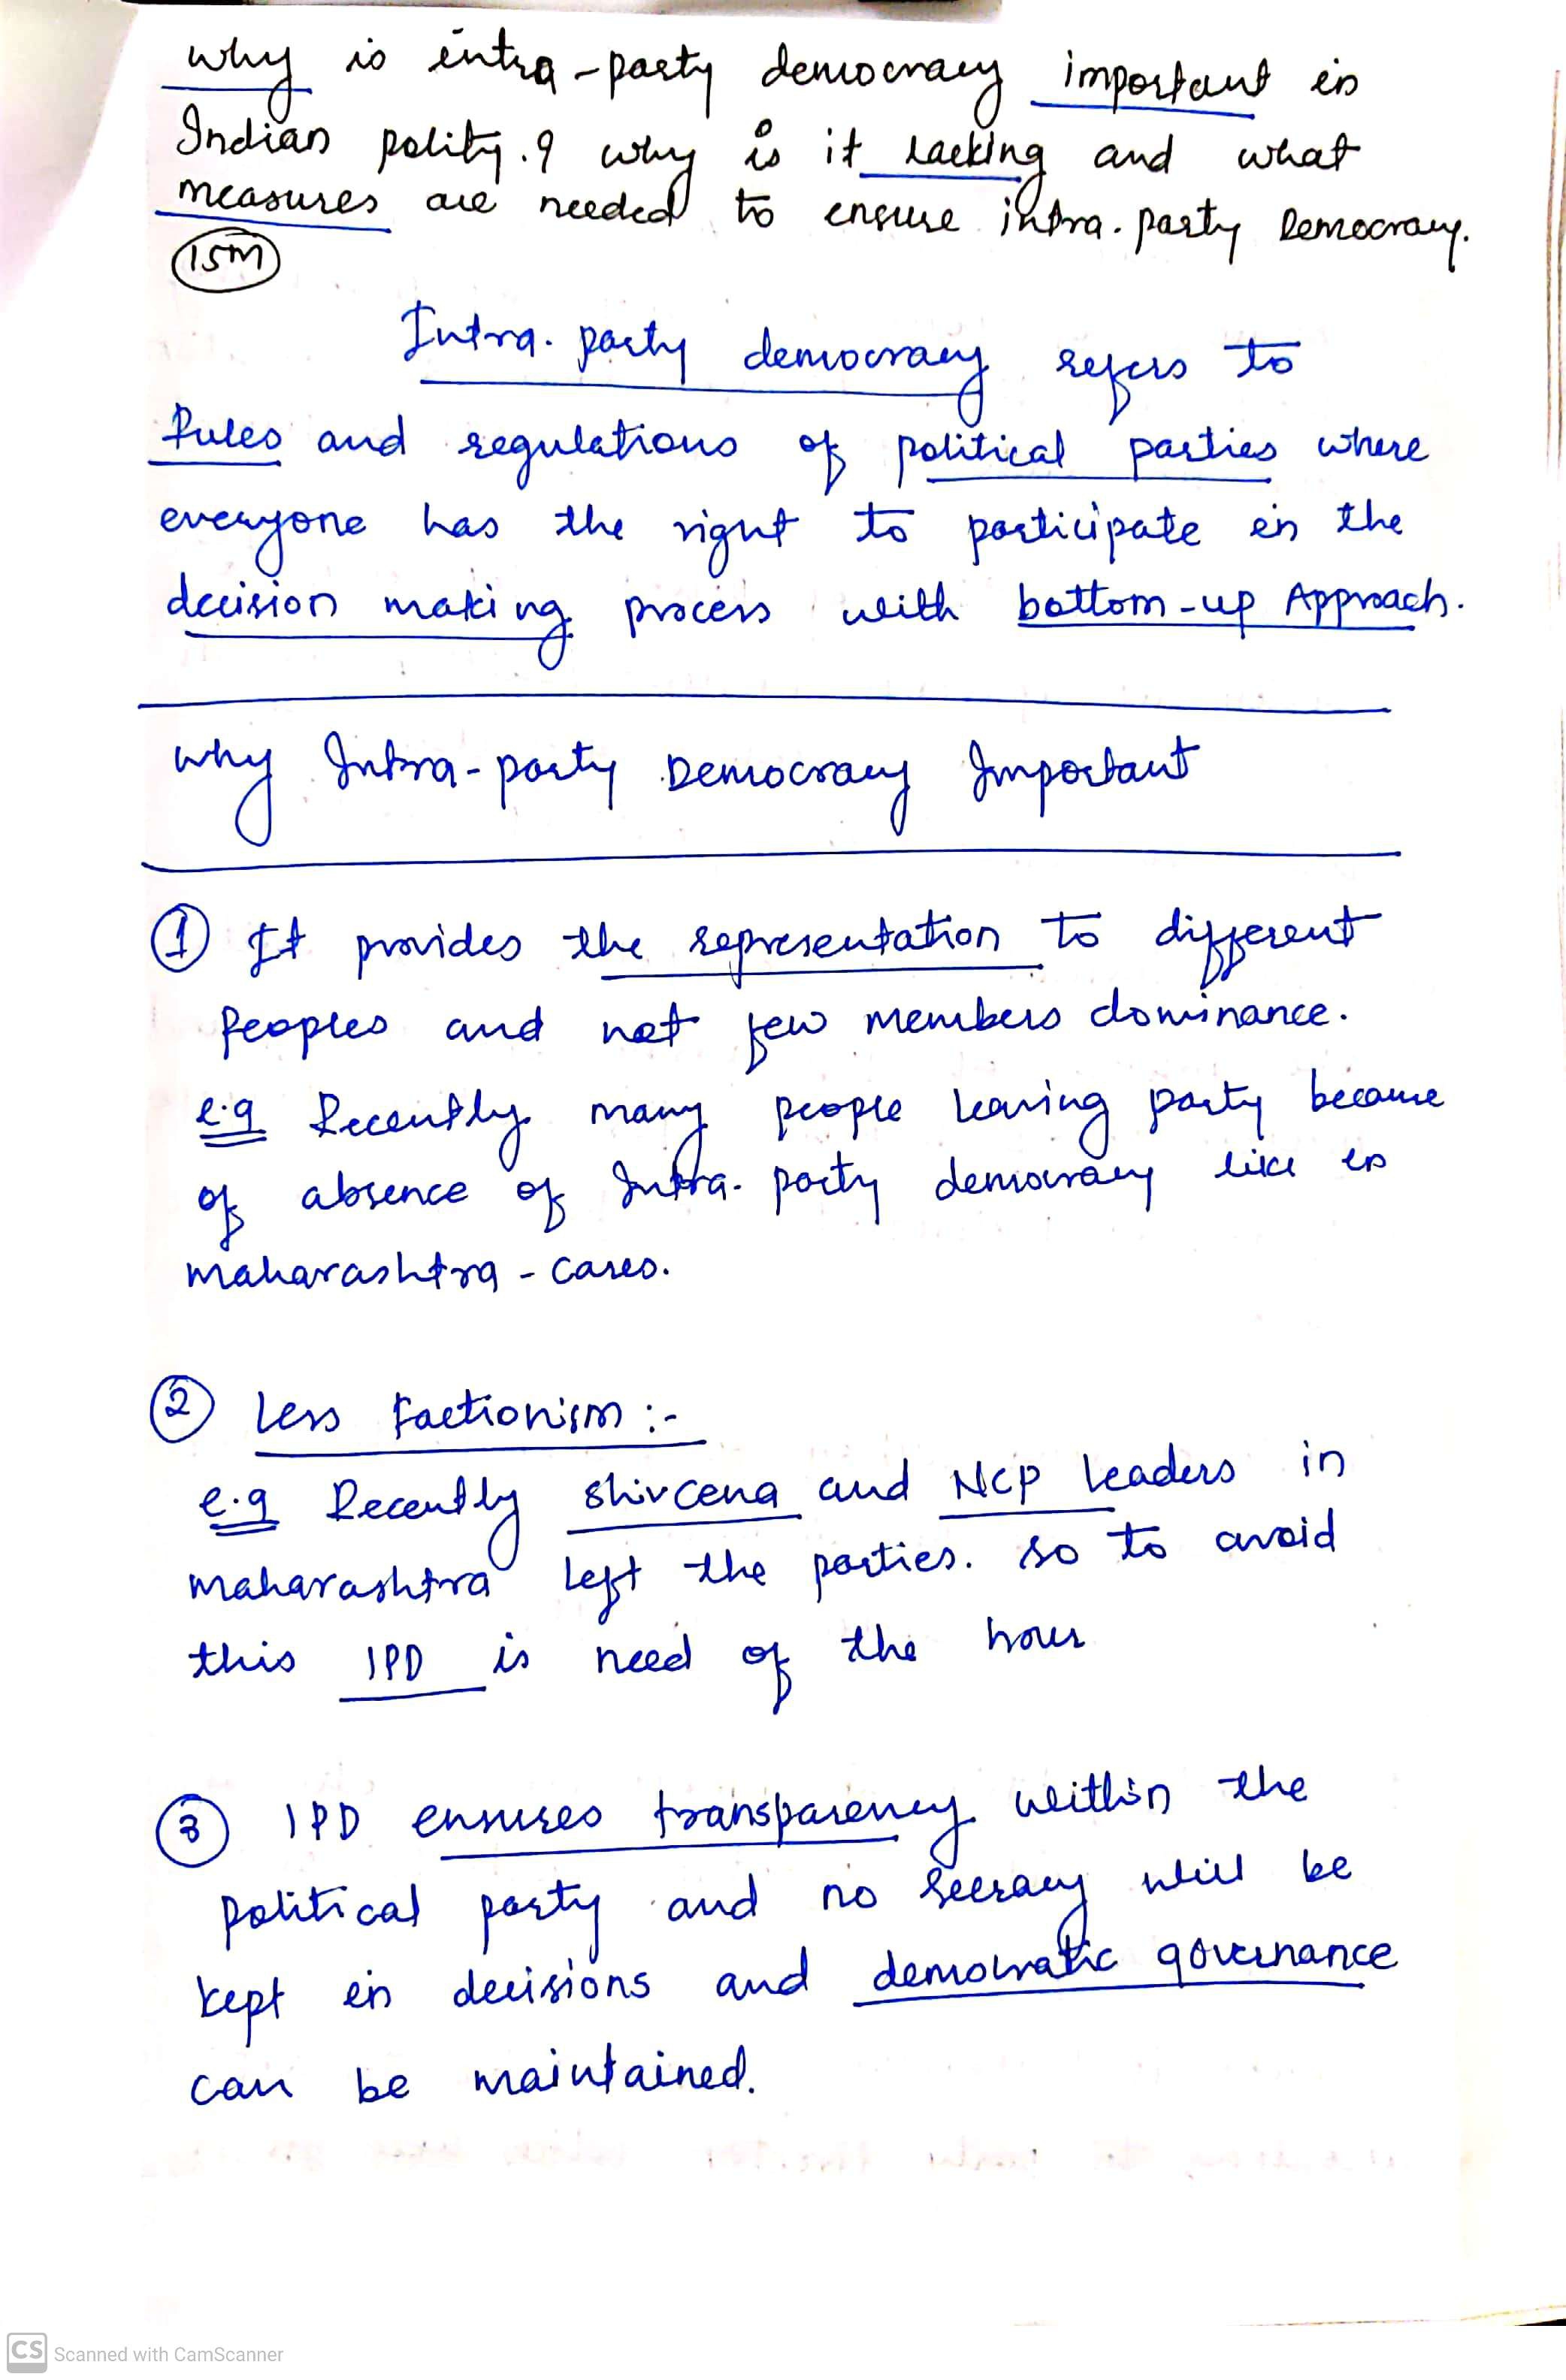 why is intra-party democracy important in
Indian polity.? why is it lacking and what
measures are needed to ensure intra-party Democracy.
15M
Intra-party democracy refers to
Rules and regulations of political parties where
everyone has the right to participate in the
decision making process with bottom-up Approach.
why Intra-party Democracy Important
1 It provides the representation to different
Peoples and not few members dominance.
e.g Recently many people leaving party because
of absence of Intra-party democracy like in
maharashtra - cases.
2 Less Factionism :-
e.g Recently Shivcena and NCP leaders in
maharashtra left the parties. so to avoid
this IPD is need of the hour
3 IPD ensures transparency within the
political party and no secracy will be
kept in decisions and democratic governance
can be maintained.
CS Scanned with CamScanner